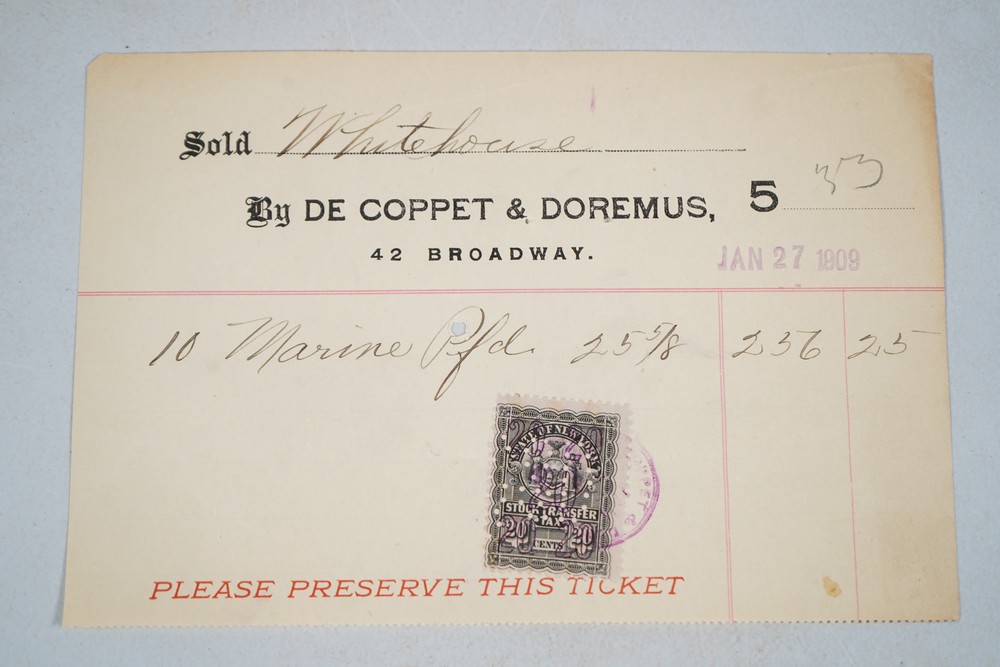 Sold Whitehouse
By DE COPPET & DOREMUS, 5 33
42 BROADWAY.
JAN 27 1909
10 Marine Pfd. 25 5/8 256 25
STATE OF NEW YORK
STOCK TRANSFER
TAX
20 CENTS 20
PLEASE PRESERVE THIS TICKET